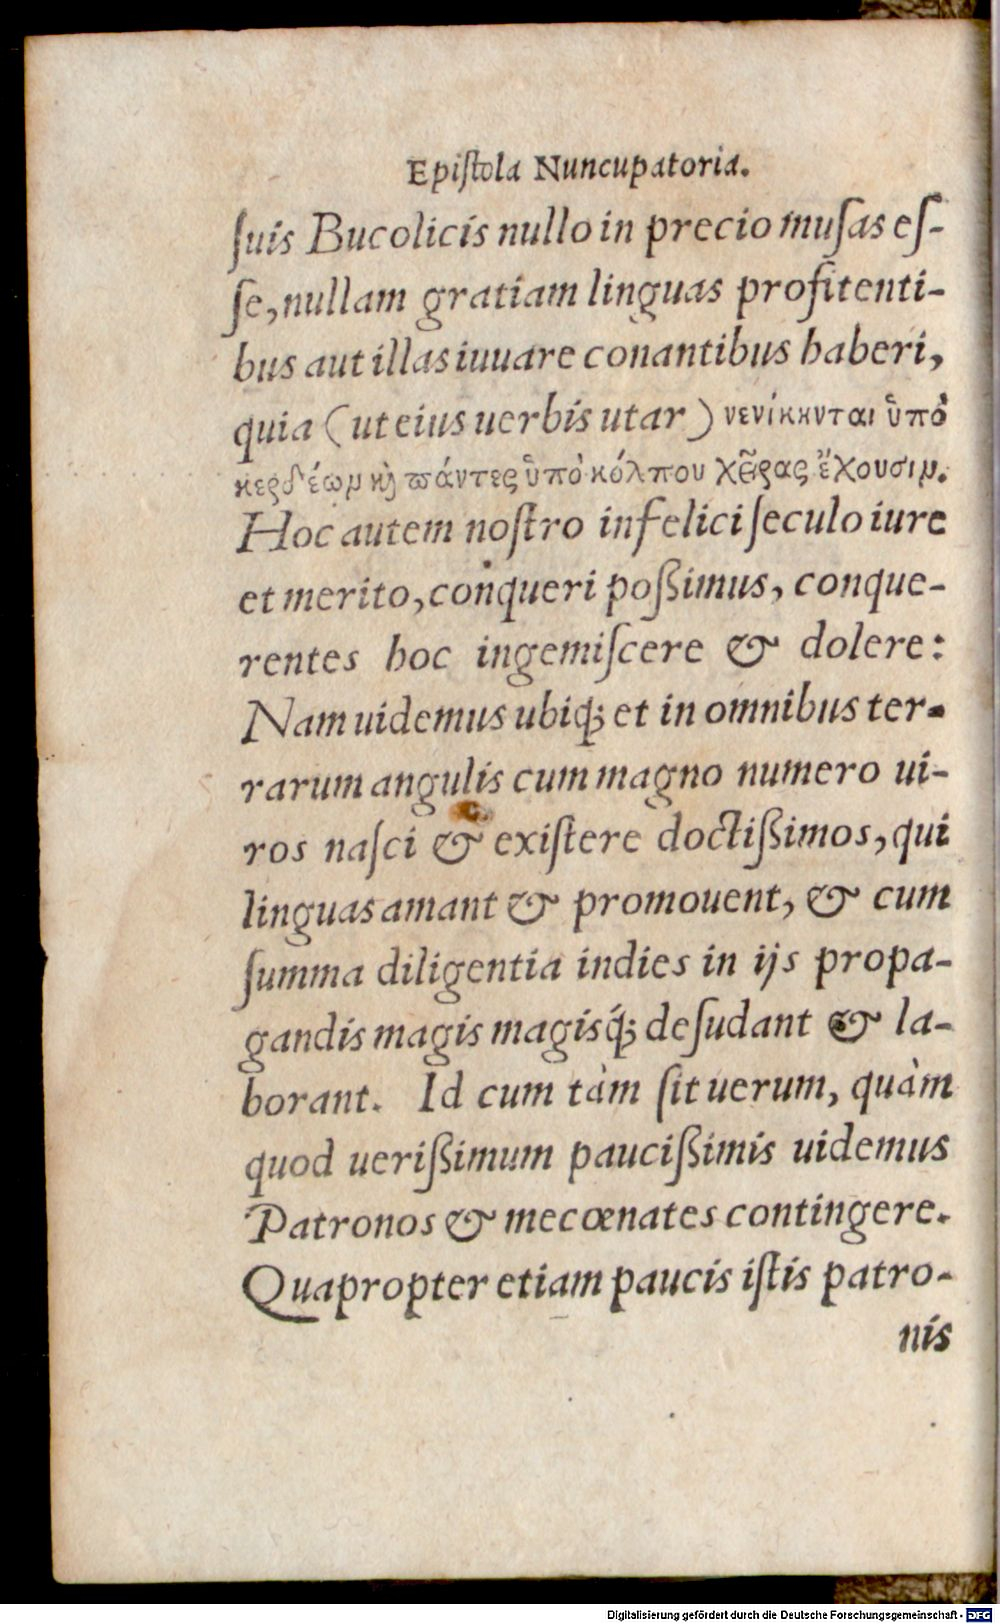 Epiſtola Nuncupatoria.
ſuis Bucolicis nullo in precio muſas eſ-
ſe, nullam gratiam linguas profitenti-
bus aut illas iuuare conantibus haberi,
quia (ut eius uerbis utar) νενίκκνται ὑπὸ
κερδέωμ κὴ ϖάντες ὑπὸ κόλπου χεῖρας ἔχουσιμ.
Hoc autem noſtro infelici ſeculo iure
et merito, conqueri poßimus, conque-
rentes hoc ingemiſcere & dolere:
Nam uidemus ubiq́; et in omnibus ter-
rarum angulis cum magno numero ui-
ros naſci & exiſtere doctißimos, qui
linguas amant & promouent, & cum
ſumma diligentia indies in ijs propa-
gandis magis magisq́; deſudant & la-
borant. Id cum tàm ſit uerum, quàm
quod uerißimum paucißimis uidemus
Patronos & mecœnates contingere.
Quapropter etiam paucis iſtis patro-
nis
Digitalisierung gefördert durch die Deutsche Forschungsgemeinschaft - DFG